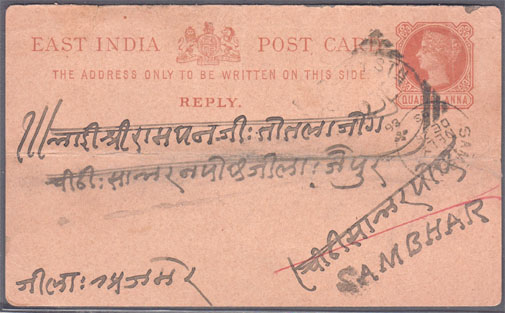 EAST INDIA POST CARD
THE ADDRESS ONLY TO BE WRITTEN ON THIS SIDE.
REPLY.
QUARTER ANNA
श्री रामधनजी: तोतला जोग
चीठी: सान्नर जीला: जैपुर
चीठी सान्नर
SAMBHAR
जीला: अजमेर